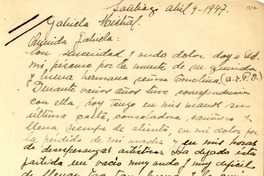 Santiago abril 9-1947.
Gabriela Mistral.
Querida Gabriela:
Con serenidad y mudo dolor doy a Ud.
mi pésame por la muerte de su querida
y buena hermana señora Emelina (q.e.p.d.)
Durante varios años tuve correspondencia
con ella, hoy tengo en mis manos su
última carta, consoladora, cariñosa y
llena siempre de aliento, en mi dolor por
la pérdida de mi madre y en mis horas
de desesperanzas artísticas. Ha dejado esta
partida un vacío muy hondo y muy difícil
de llenar